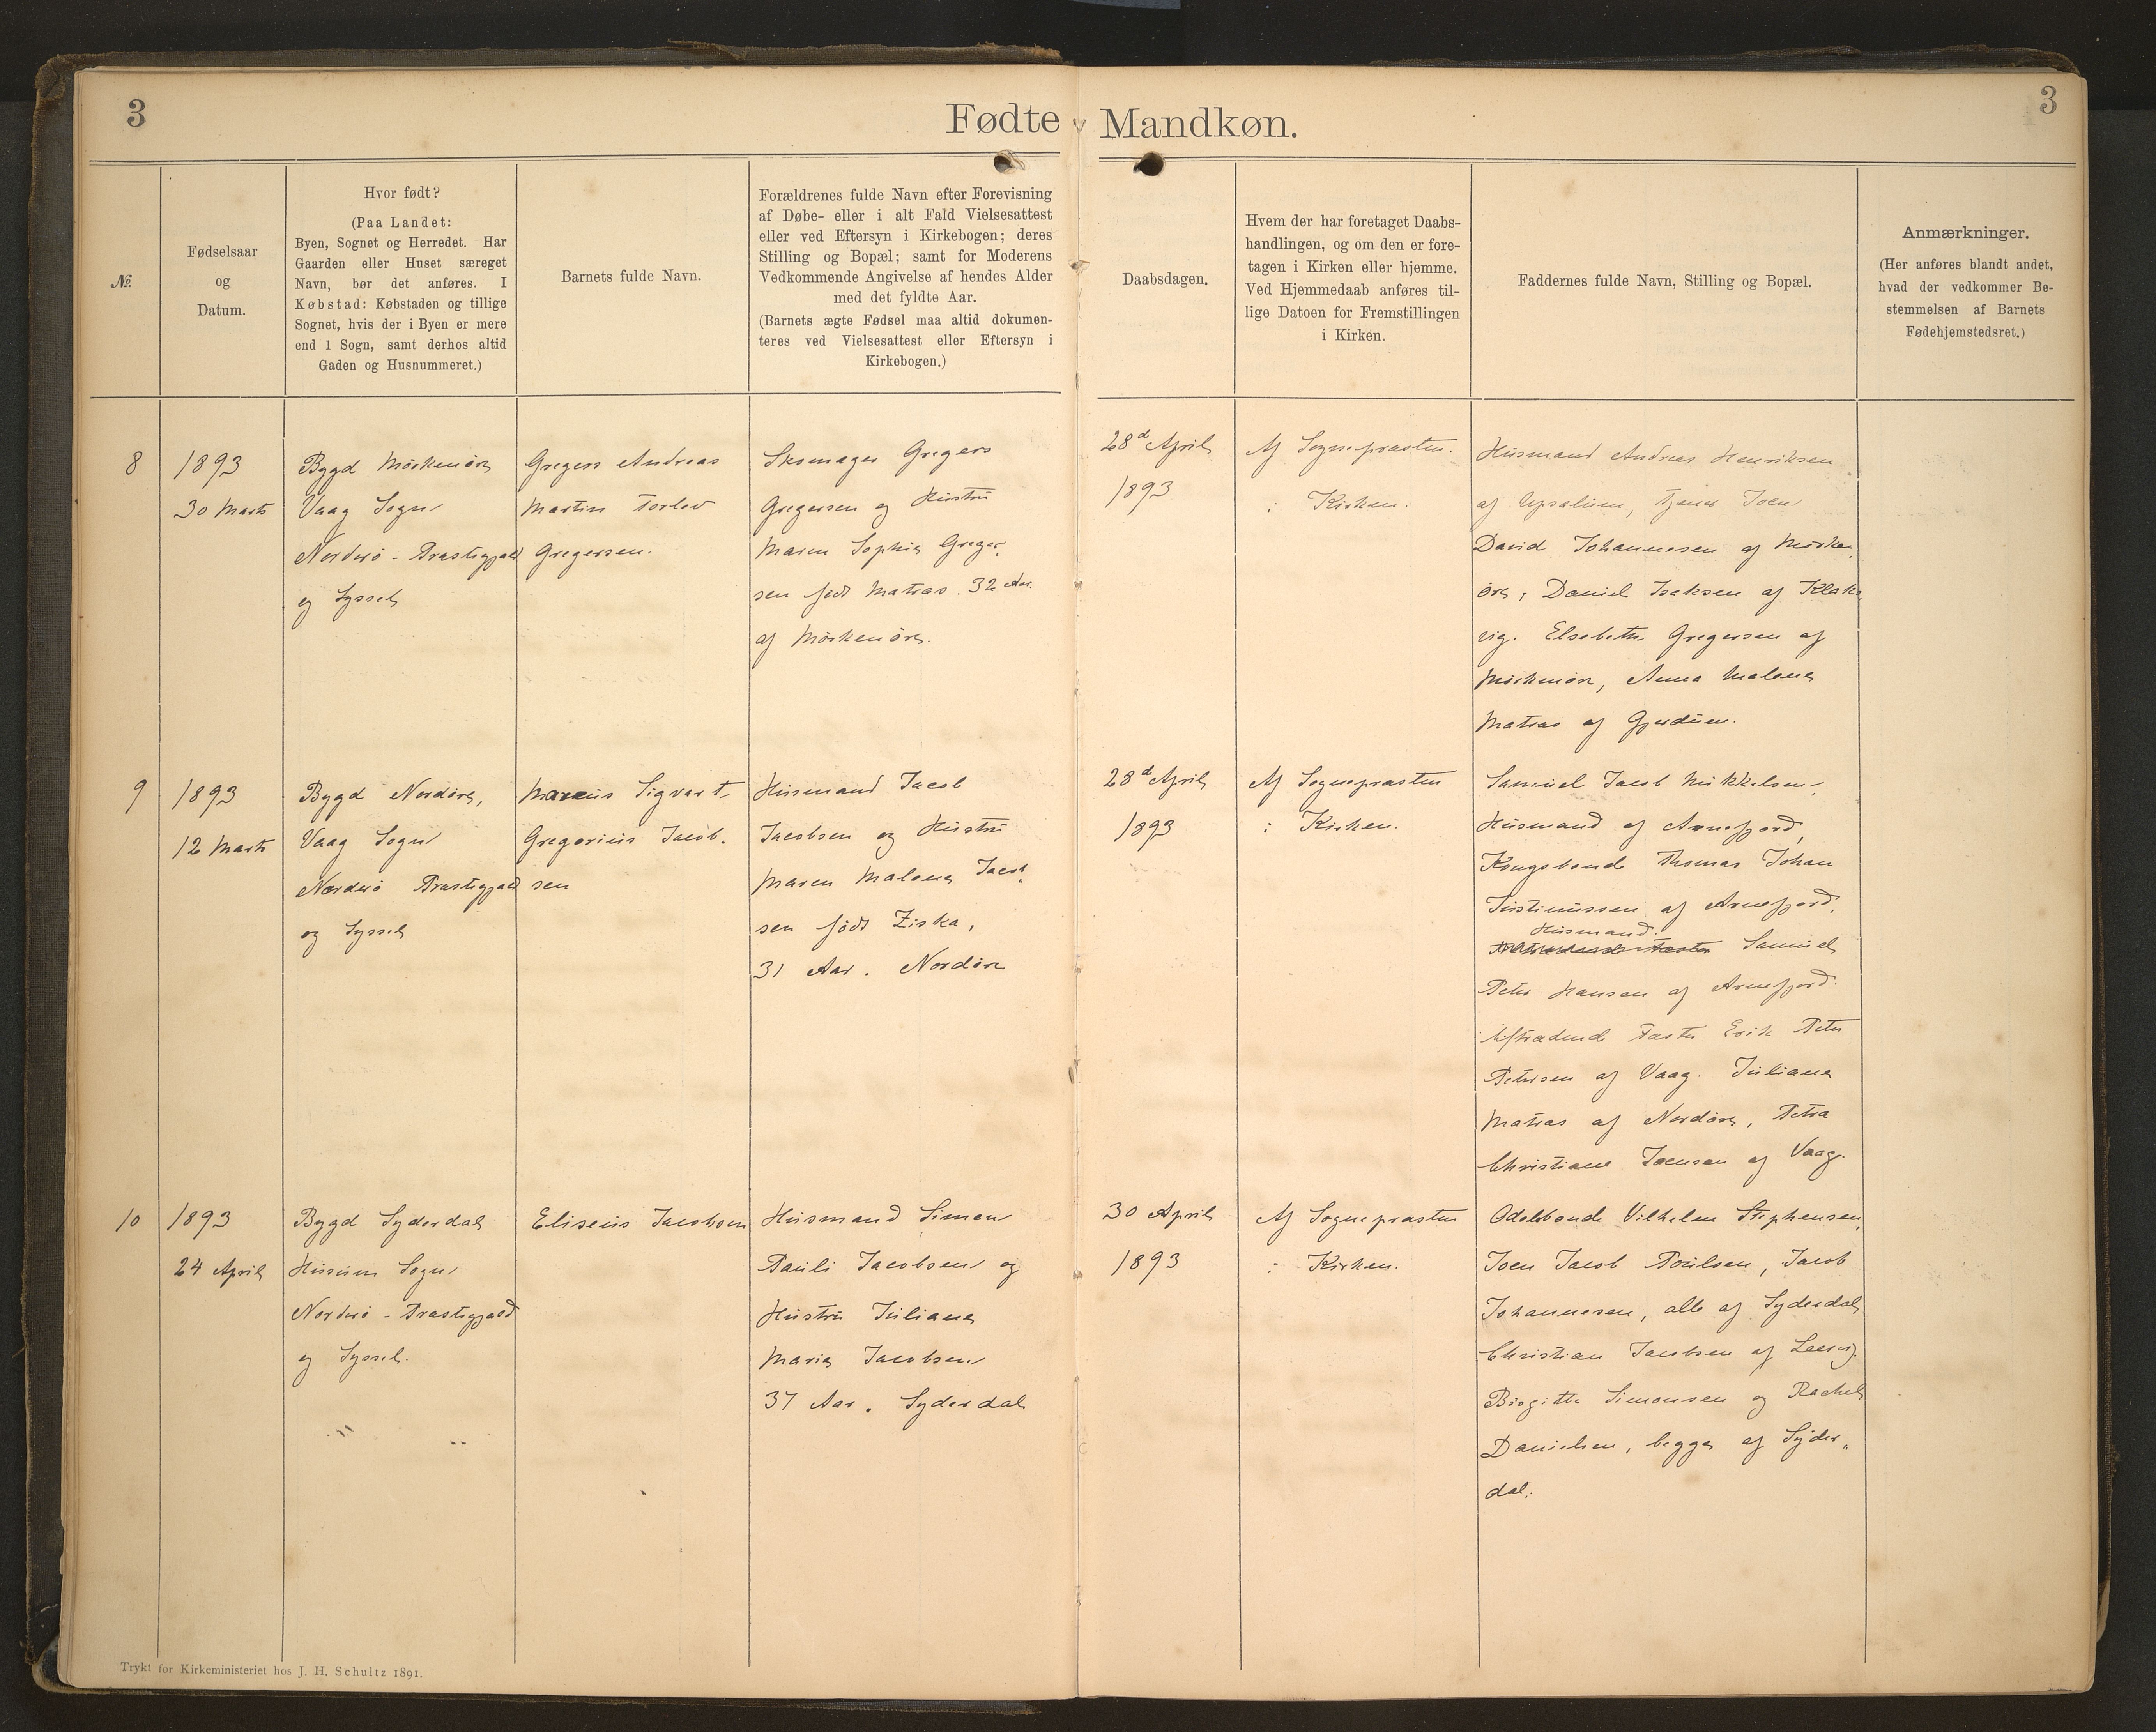 3
Fødte Mandkøn.
3
№
Fødselsaar
og
Datum.
Hvor født?
(Paa Landet:
Byen, Sognet og Herredet. Har
Gaarden eller Huset særeget
Navn, bør det anføres. I
Købstad: Købstaden og tillige
Sognet, hvis der i Byen er mere
end 1 Sogn, samt derhos altid
Gaden og Husnummeret.)
Barnets fulde Navn.
Forældrenes fulde Navn efter Forevisning
af Døbe- eller i alt Fald Vielsesattest
eller ved Eftersyn i Kirkebogen; deres
Stilling og Bopæl; samt for Moderens
Vedkommende Angivelse af hendes Alder
med det fyldte Aar.
(Barnets ægte Fødsel maa altid dokumen-
teres ved Vielsesattest eller Eftersyn i
Kirkebogen.)
Daabsdagen.
Hvem der har foretaget Daabs-
handlingen, og om den er fore-
tagen i Kirken eller hjemme.
Ved Hjemmedaab anføres til-
lige Datoen for Fremstillingen
i Kirken.
Faddernes fulde Navn, Stilling og Bopæl.
Anmærkninger.
(Her anføres blandt andet,
hvad der vedkommer Be-
stemmelsen af Barnets
Fødehjemstedsret.)
8
1893
30 Marts
Bygd Mørkenøre
Vaag Sogn
Norderø - Præstegjæld
og Syssel
Gregers Andreas
Martin Torlev
Gregersen.
Skomager Gregers
Gregersen og Hustru
Maren Sophie Greger-
sen født Matras. 32 Aar.
af Mørkenøre.
28d April
1893
Af Sognepræsten.
i Kirken.
Husmand Andreas Henriksen
af Upsalum, Tjener Joen
David Johannesen af Mørken-
øre, Daniel Isaksen af Klaks-
vig. Elsebeth Gregersen af
Mørkenøre, Anna Malene
Matras af Gjerdum.
9
1893
12 Marts
Bygd Nordøre,
Vaag Sogn
Norderø Præstegjæld
og Syssel
Marius Sigvart
Gregorius Jacob-
sen
Husmand Jacob
Jacobsen og Hustru
Maren Malene Jacob-
sen født Ziska,
31 Aar. Nordøre
28d April
1893
Af Sognepræsten
i Kirken.
Samuel Jacob Mikkelsen,
Husmand af Arnefjord,
Kongsbonde Thomas Johan
Justinussen af Arnefjord,
Husmand
Samuel
Peter Hansen af Arnefjord.
Aftrædende Fæster Erik Peter
Petersen af Vaag. Juliane
Matras af Nordøre, Petra
Christiane Joensen af Vaag.
10
1893
24 April
Bygd Syderdal
Husum Sogn
Norderø - Præstegjæld
og Syssel.
Eliseus Jacobsen
Husmand Simon
Pauli Jacobsen og
Hustru Juliane
Marie Jacobsen
37 Aar. Syderdal
30 April
1893
Af Sognepræsten
i Kirken.
Odelsbonde Vilhelm Stephensen,
Joen Jacob Poulsen, Jacob
Johannesen, alle af Syderdal
Christian Jacobsen af Leervig.
Birgitte Simonsen og Rachel
Danielsen, begge af Syder-
dal.
Trykt for Kirkeministeriet hos J. H. Schultz 1891.